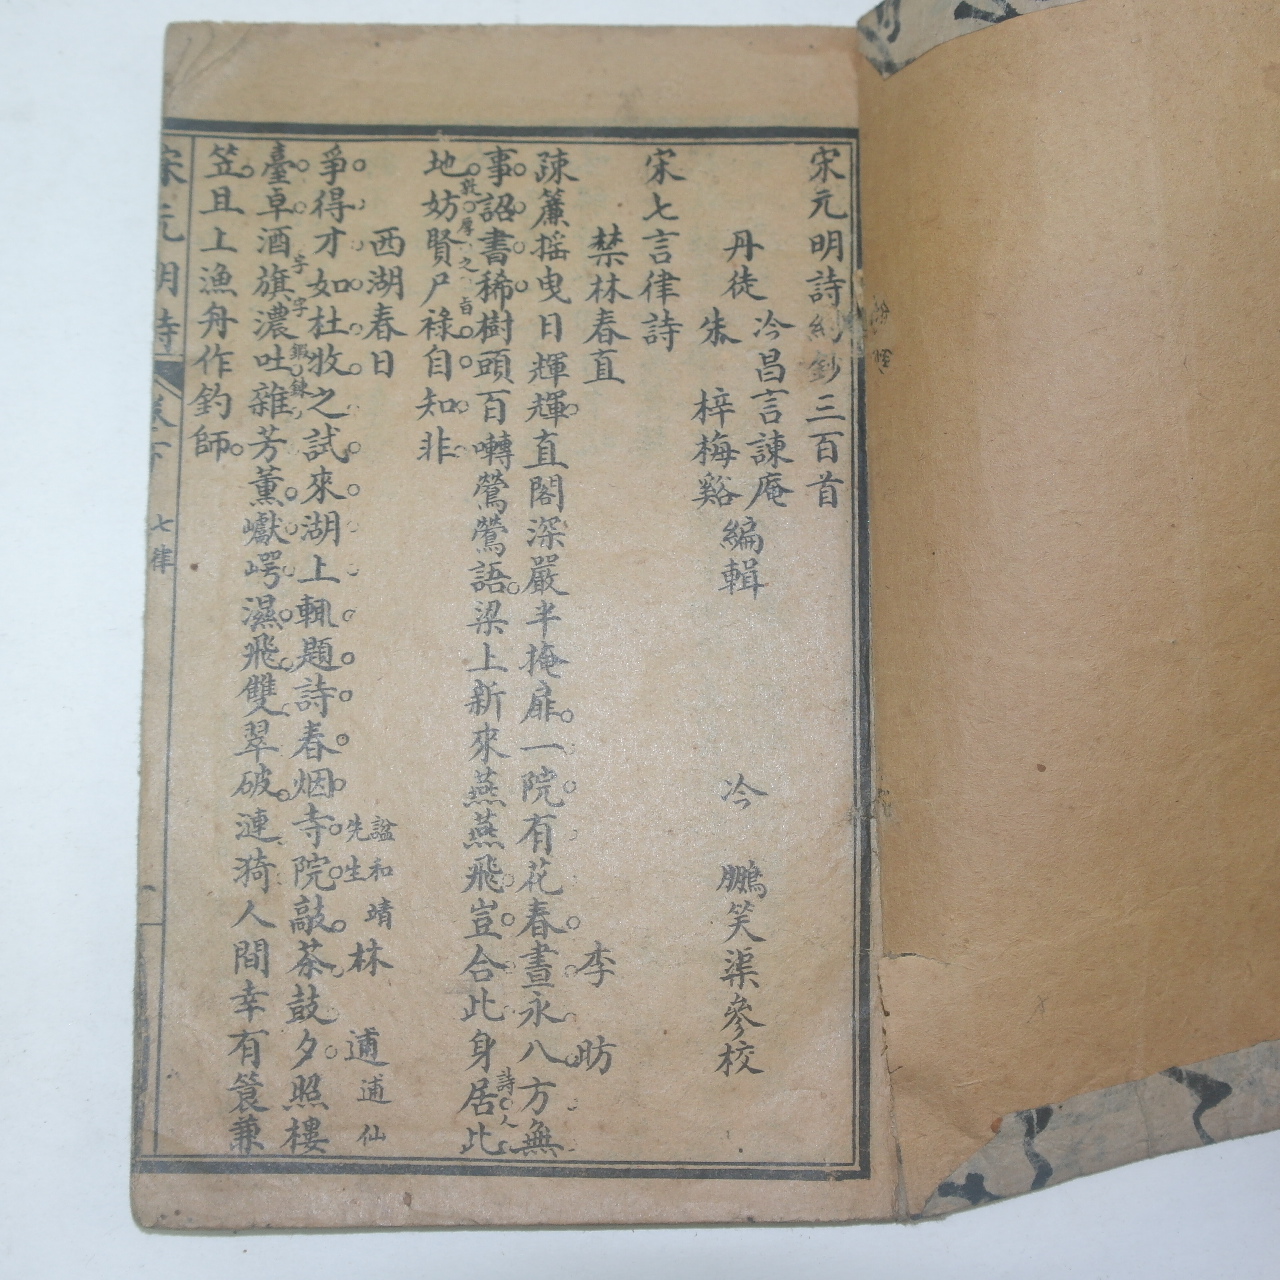 宋元明詩約鈔三百首
丹徒
冷昌言諫庵
朱梓梅谿
編輯
冷鵬笑渠參校
宋七言律詩
禁林春直 李昉
疎簾搖曳日輝輝直閣深嚴半掩扉一院有花春晝永八方無
事詔書稀樹頭百囀鶯鶯語梁上新來燕燕飛豈合此身居此
詩人
敦厚之旨
地妨賢尸祿自知非
西湖春日 林逋逋仙
諡和靖
先生
爭得才如杜牧之試來湖上輒題詩春烟寺院敲茶鼓夕照樓
字字鍛鍊
臺卓酒旗濃吐雜芳薰巘崿濕飛雙翠破漣漪人間幸有簑兼
笠且上漁舟作釣師
宋元明詩
七律
一